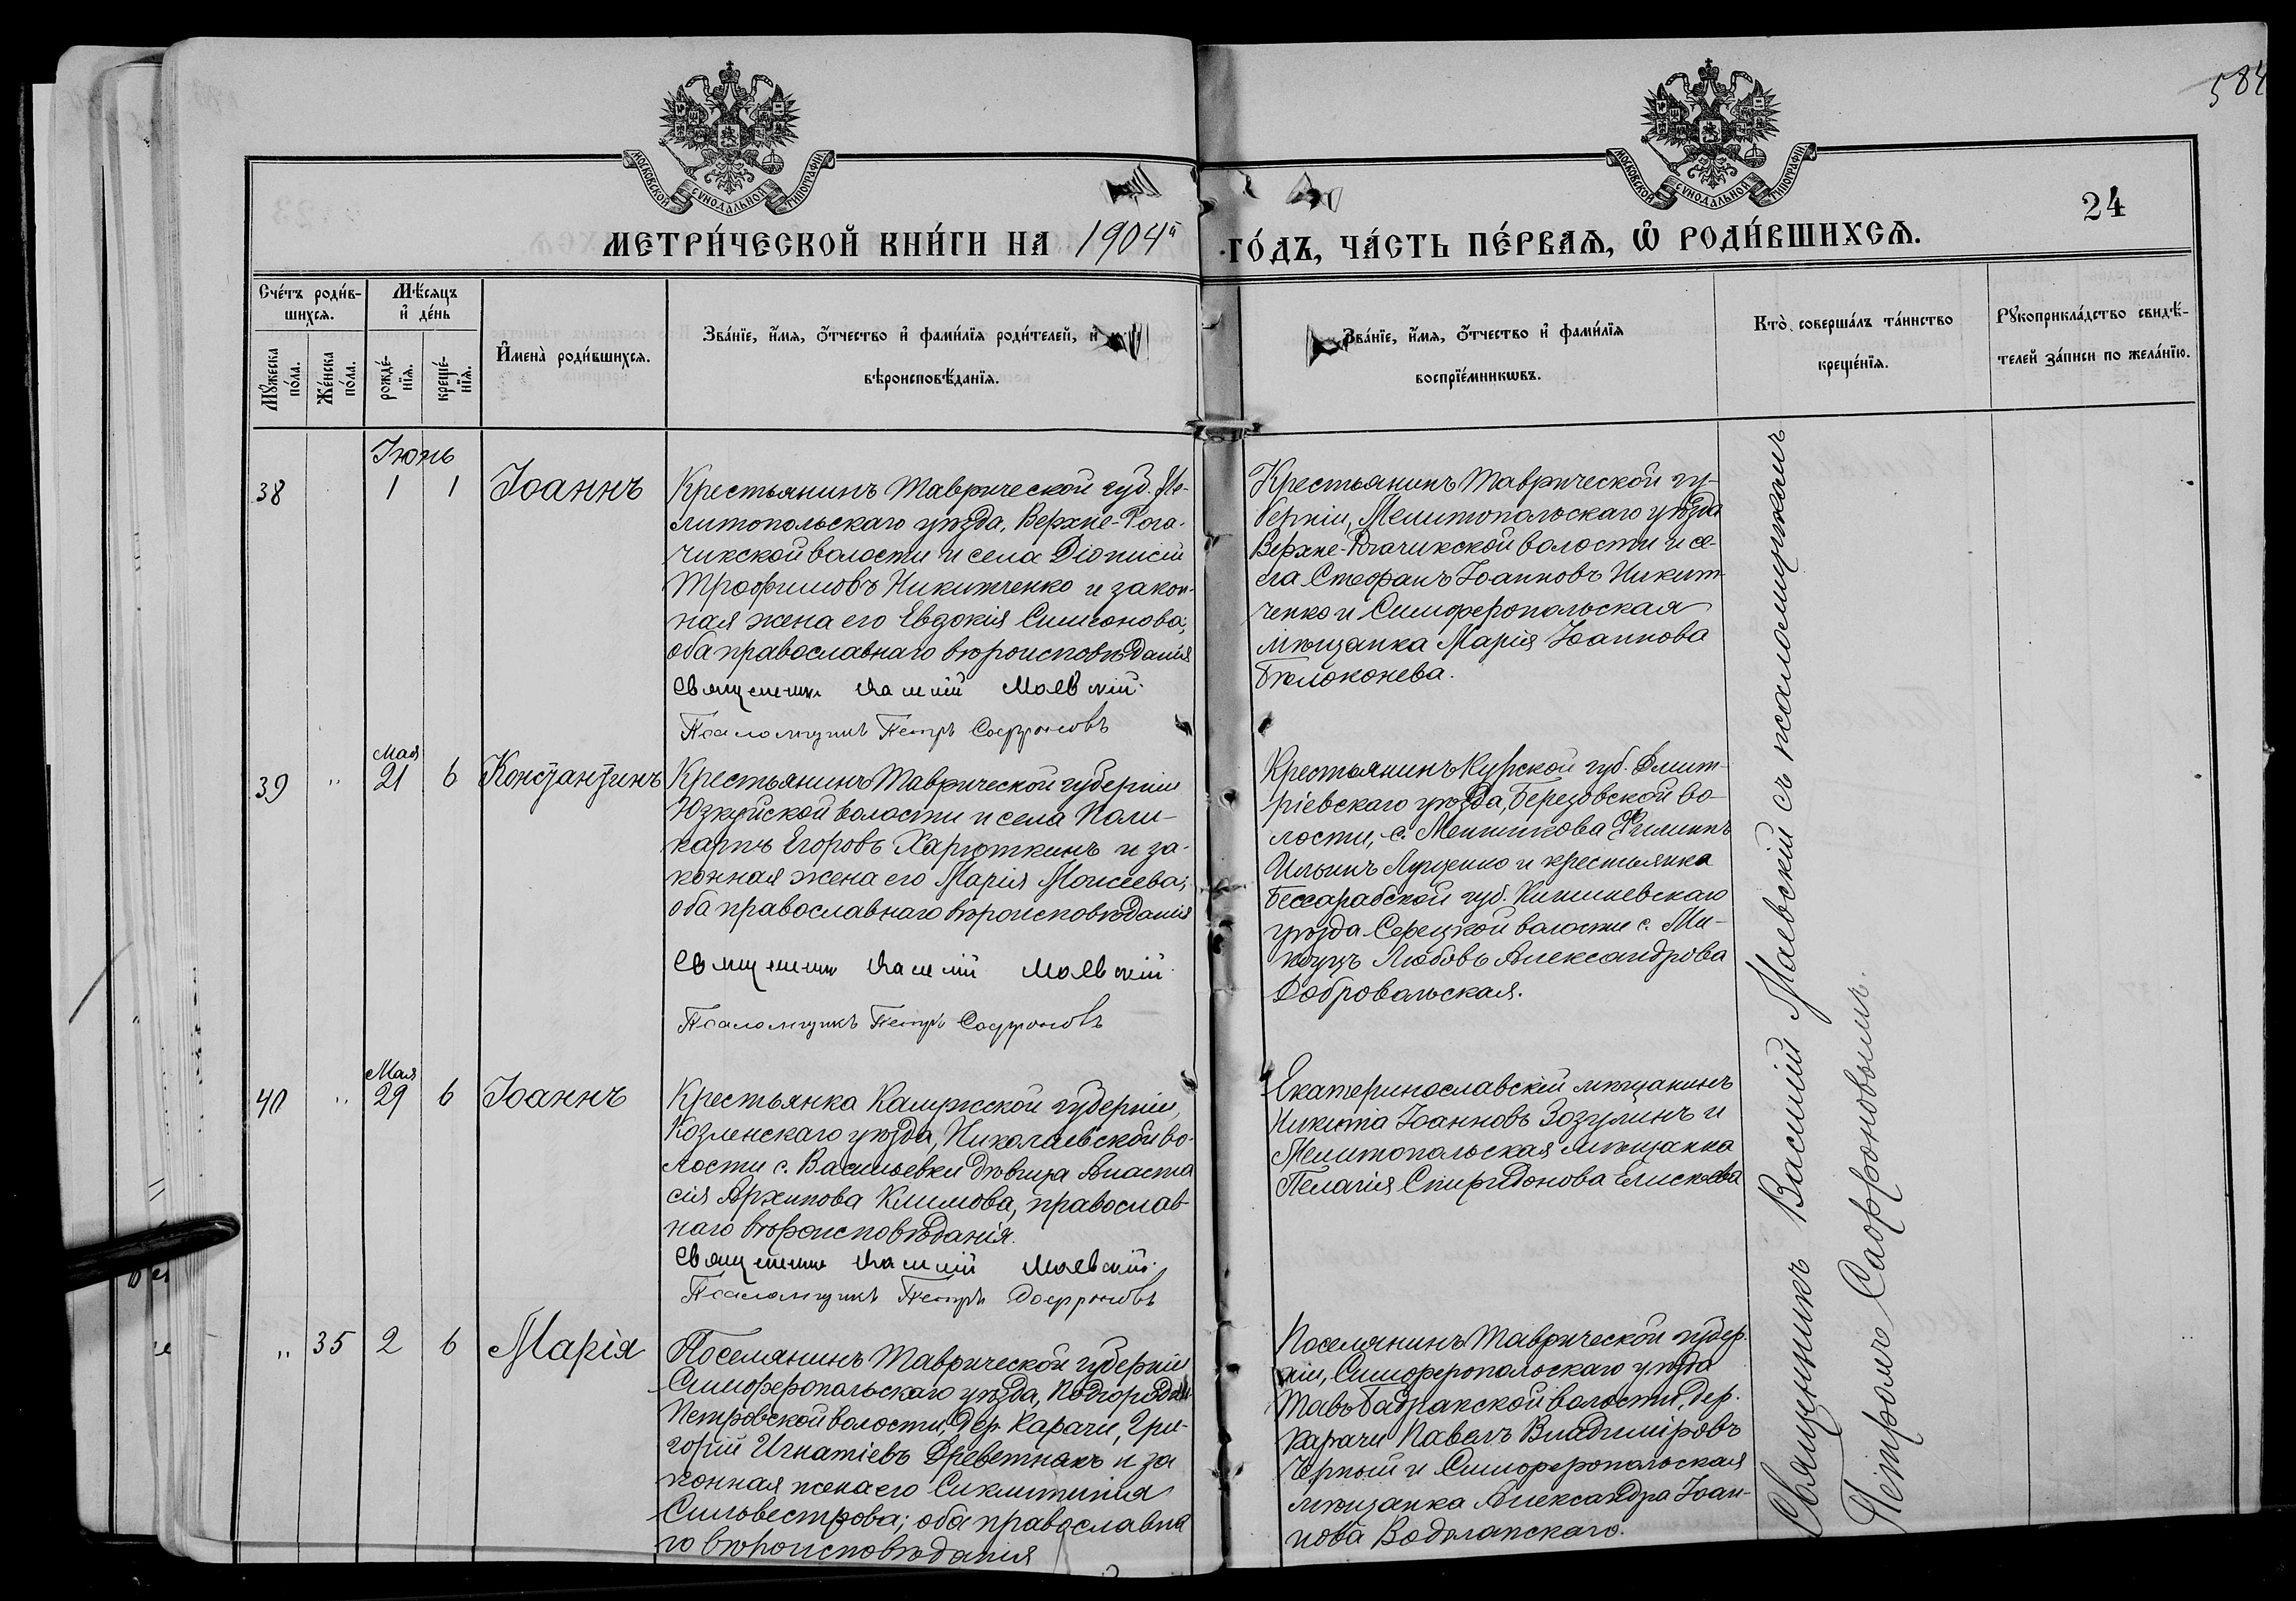 584
24
МОСКОВСКОЙ СѴНОДАЛЬНОЙ ТИПОГРАФІИ
МОСКОВСКОЙ СѴНОДАЛЬНОЙ ТИПОГРАФІИ
МЕТРИ́ЧЕСКОЙ КНИ́ГИ НА 1904й ГО́ДЪ, ЧА́СТЬ ПЕ́РВАѦ, Ѽ РОДИ́ВШИХСѦ.
Сче́тъ роди́в-
шихсѧ.
Мꙋ́жеска по́ла.
Же́нска по́ла.
Мѣ́сяцъ
и҆ де́нь
рожде́-
нїѧ.
креще́-
нїѧ.
И҆мена̀ роди́вшихсѧ.
Зва́нїе, и҆́мѧ, ѻ҆́тчество и҆ фами́лїѧ роди́телей, и҆
вѣроисповѣ́данїѧ.
Зва́нїе, и҆́мѧ, ѻ҆́тчество и҆ фами́лїѧ
воспрїе́мникѡвъ.
Кто̀ соверша́лъ та́инство
креще́нїѧ.
Рꙋкоприкла́дство свидѣ́-
телей за́писи по жела́нїю.
Іюнь
38 1 1 Іоаннъ
Крестьянинъ Таврической губ. Ме-
литопольскаго уѣзда, Верхне-Рога-
чикской волости и села Діонисій
Трофимовъ Никитченко и закон-
ная жена его Евдокія Симеонова;
оба православнаго вѣроисповѣданія
Священникъ Василій Маевскій.
Псаломщикъ Петръ Сафроновъ
Крестьянинъ Таврической гу-
берніи, Мелитопольскаго уѣзда
Верхне-Рогачикской волости и се-
ла Стефанъ Іоанновъ Никит-
ченко и Симферопольская
мѣщанка Марія Іоаннова
Бѣлоконева.
Мая
39 " 21 6 Константинъ
Крестьянинъ Таврической губерніи
Юзкуйской волости и села Поли-
карпъ Егоровъ Харюткинъ и за-
конная жена его Марія Моисеева;
оба православнаго вѣроисповѣданія
Священникъ Василій Маевскій.
Псаломщикъ Петръ Сафроновъ
Крестьянинъ Курской губ. Дмит-
ріевскаго уѣзда, Березовской во-
лости, с. Меншикова Филиппъ
Ильинъ и крестьянка
Бессарабской губ. Кишиневскаго
уѣзда волости с.
Любовь Александрова
Добровольская.
Мая
40 " 29 6 Іоаннъ
Крестьянка Калужской губерніи,
Козленскаго уѣзда, Николаевской во-
лости с. Васильевки дѣвица Анаста
сія Архипова Климова, православ-
наго вѣроисповѣданія.
Священникъ Василій Маевскій.
Псаломщикъ Петръ Сафроновъ
Екатеринославскій мѣщанинъ
Никита Іоанновъ Зозулинъ и
Мелитопольская мѣщанка
Пелагія Спиридонова Елисѣева
" 35 2 6 Марія
Поселянинъ Таврической губерніи
Симферопольскаго уѣзда, Подгородне-
Петровской волости, дер. Карачи, Гри-
горій Игнатіевъ Древетнякъ и за
конная жена его Синклитикія
Сильвестрова; оба православна
го вѣроисповѣданія
Поселянинъ Таврической губер-
ніи, Симферопольскаго уѣзда
волости, дер.
Карачи Павелъ Владиміровъ
Черный и Симферопольская
мѣщанка Александра Іоан-
нова Водолапскаго.
Священникъ Василій Маевскій съ псаломщикомъ
Петромъ Сафроновымъ.